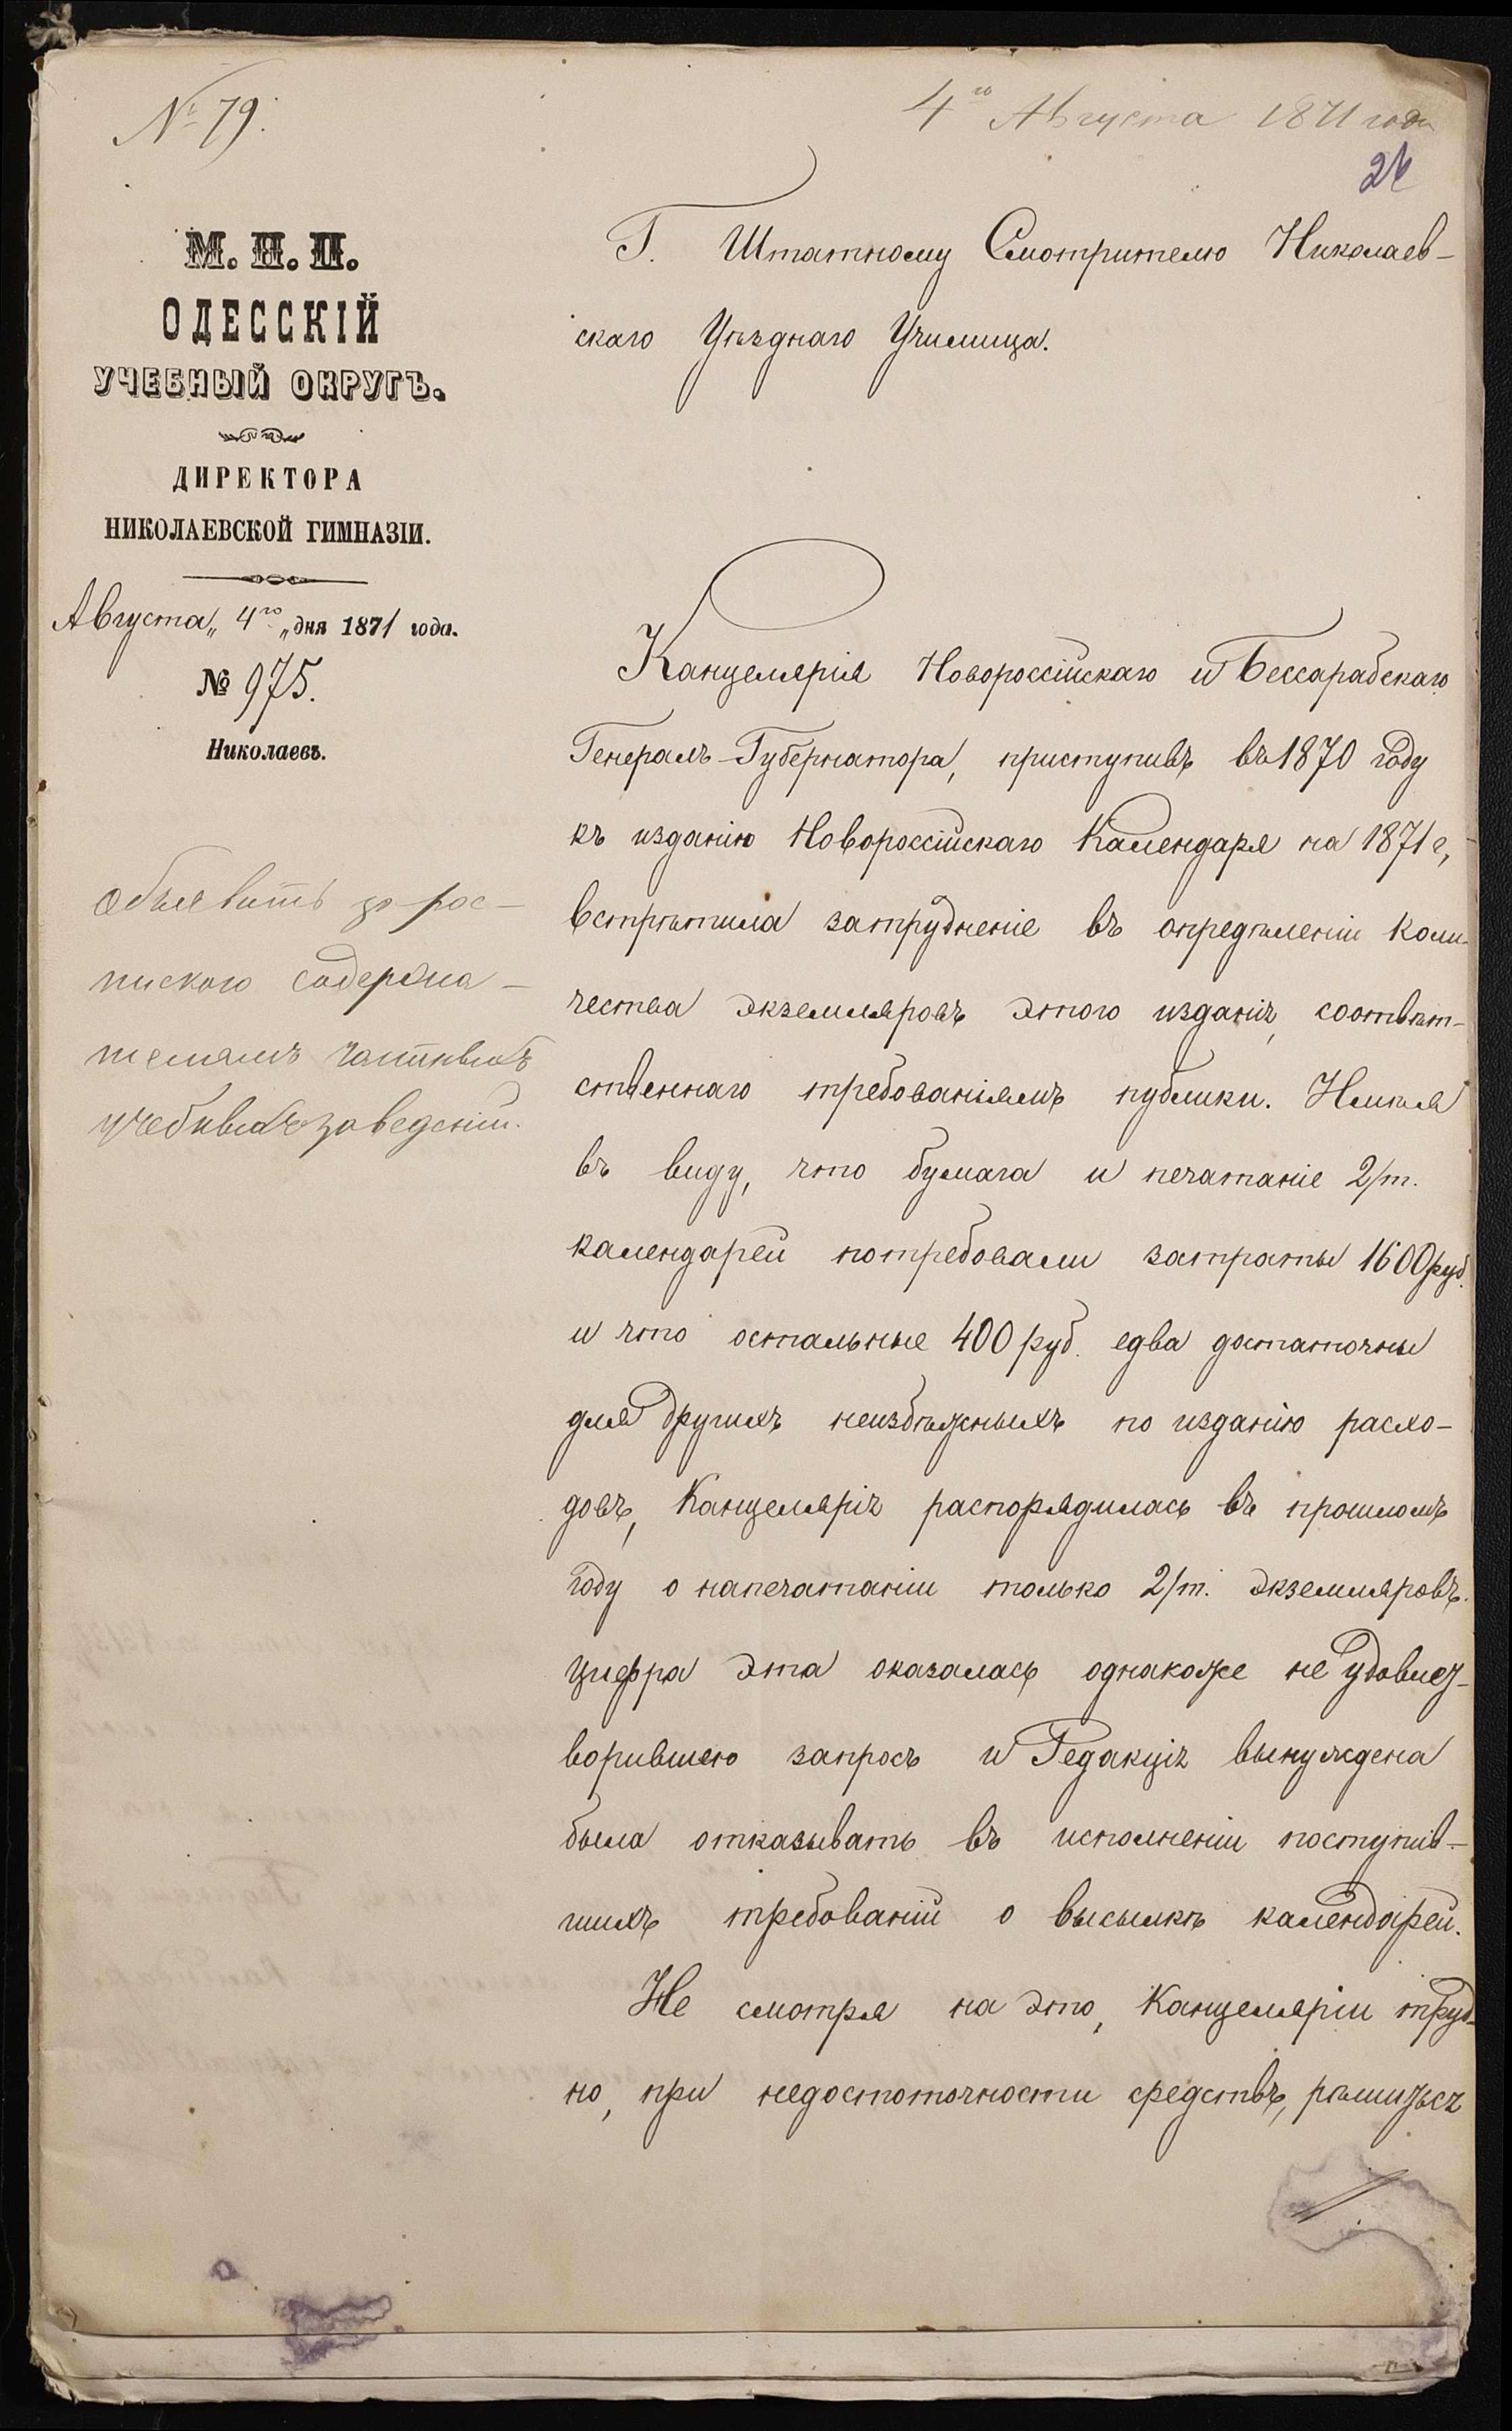 № 79.
4го Августа 1871 года
М. Н. П.
ОДЕССКІЙ
УЧЕБНЫЙ ОКРУГЪ.
ДИРЕКТОРА
НИКОЛАЕВСКОЙ ГИМНАЗІИ.
Августа „4го„ дня 1871 года.
№ 975.
Николаевъ.
Объявить за рос-
пискою содержа-
телямъ частныхъ
учебныхъ заведеній.
Г. Штатному Смотрителю Николаев-
скаго Уѣзднаго Училища.
Канцелярія Новороссійскаго и Бессарабскаго
Генералъ-Губернатора, приступивъ въ 1870 году
къ изданію Новороссійскаго Календаря на 1871 г,
встрѣтила затрудненіе въ опредѣленіи коли-
чества экземпляровъ этого изданія, соотвѣт-
ственнаго требованіямъ публики. Имѣя
въ виду, что бумага и печатаніе 2/т.
календарей потребовали затраты 1600 руб.
и что остальные 400 руб. едва достаточны
для другихъ неизбѣжныхъ по изданію расхо-
довъ, Канцелярія распорядилась въ прошломъ
году о напечатаніи только 2/т. экземпляровъ.
цифра эта оказалась однакоже не удовлет-
ворившею запросъ и Редакція вынуждена
была отказывать въ исполненіи поступив-
шихъ требованій о высылкѣ календарей.
Не смотря на это, Канцеляріи труд-
но, при недостоточности средствъ, рѣшиться